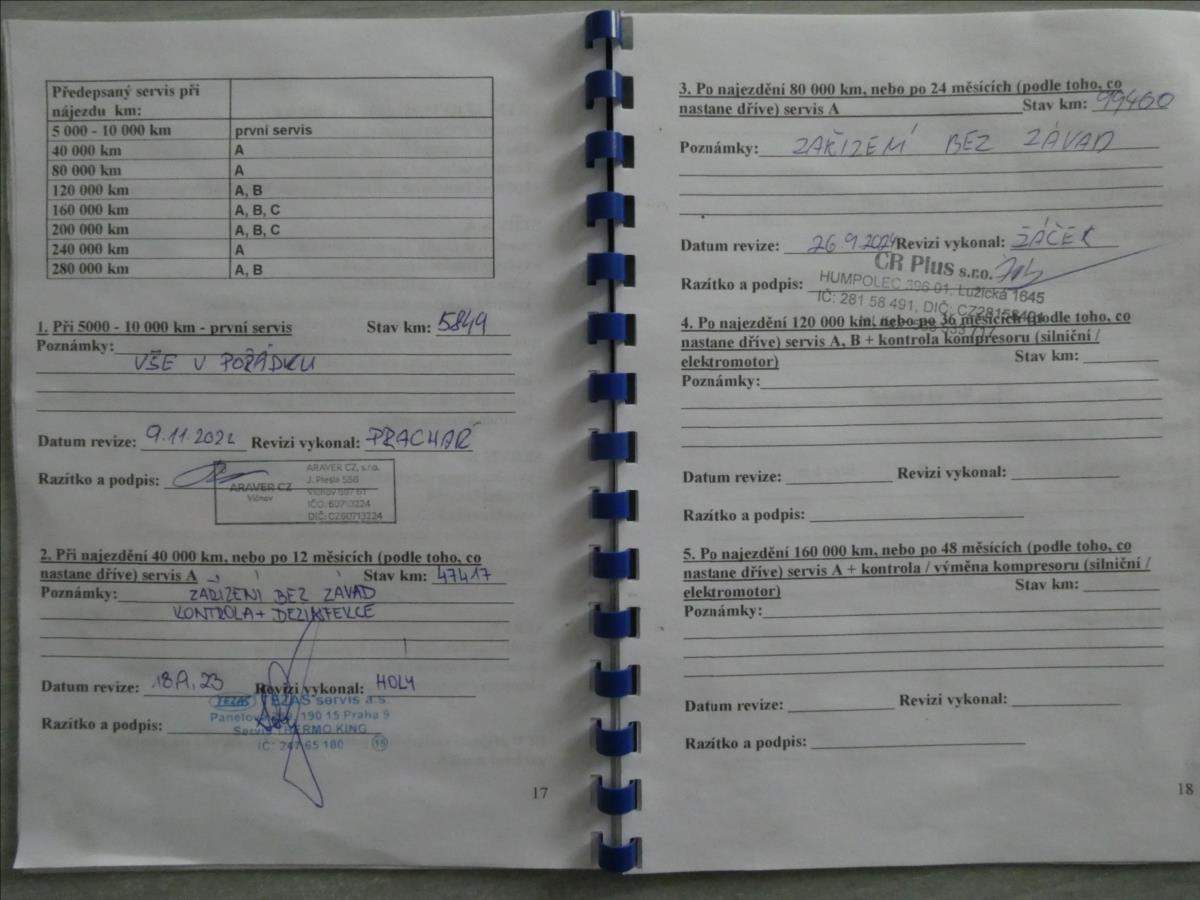 Předepsaný servis při nájezdu km:
5 000 - 10 000 km první servis
40 000 km A
80 000 km A
120 000 km A, B
160 000 km A, B, C
200 000 km A, B, C
240 000 km A
280 000 km A, B
1. Při 5000 - 10 000 km - první servis Stav km: 5849
Poznámky:
VŠE V POŘÁDKU
Datum revize: 9.11.2022 Revizi vykonal: PRACHAŘ
Razítko a podpis:
ARAVER CZ
Vlčnov
ARAVER CZ, s.r.o.
Vlčnov 687 61
IČO: 60713224
DIČ: CZ60713224
2. Při najezdění 40 000 km, nebo po 12 měsících (podle toho, co
nastane dříve) servis A Stav km: 47417
Poznámky: ZAŘÍZENÍ BEZ ZÁVAD
KONTROLA + DEZINFEKCE
Datum revize: 18.9.23 Revizi vykonal: HOLY
TEZAS TEZAS servis a.s.
Razítko a podpis:
190 15 Praha 9
Servis THERMO KING
IČ: 247 65 180 15
17
3. Po najezdění 80 000 km, nebo po 24 měsících (podle toho, co
nastane dříve) servis A Stav km: 99460
Poznámky: ZAŘÍZENÍ BEZ ZÁVAD
Datum revize: 26.9.2024 Revizi vykonal: ŽÁČEK
CR Plus s.r.o.
Razítko a podpis:
HUMPOLEC 396 01, Lužická 1645
IČ: 281 58 491, DIČ:
4. Po najezdění 120 000 km, nebo po 36 měsících (podle toho, co
nastane dříve) servis A, B + kontrola kompresoru (silniční /
elektromotor) Stav km:
Poznámky:
Datum revize: Revizi vykonal:
Razítko a podpis:
5. Po najezdění 160 000 km, nebo po 48 měsících (podle toho, co
nastane dříve) servis A + kontrola / výměna kompresoru (silniční /
elektromotor) Stav km:
Poznámky:
Datum revize: Revizi vykonal:
Razítko a podpis:
18